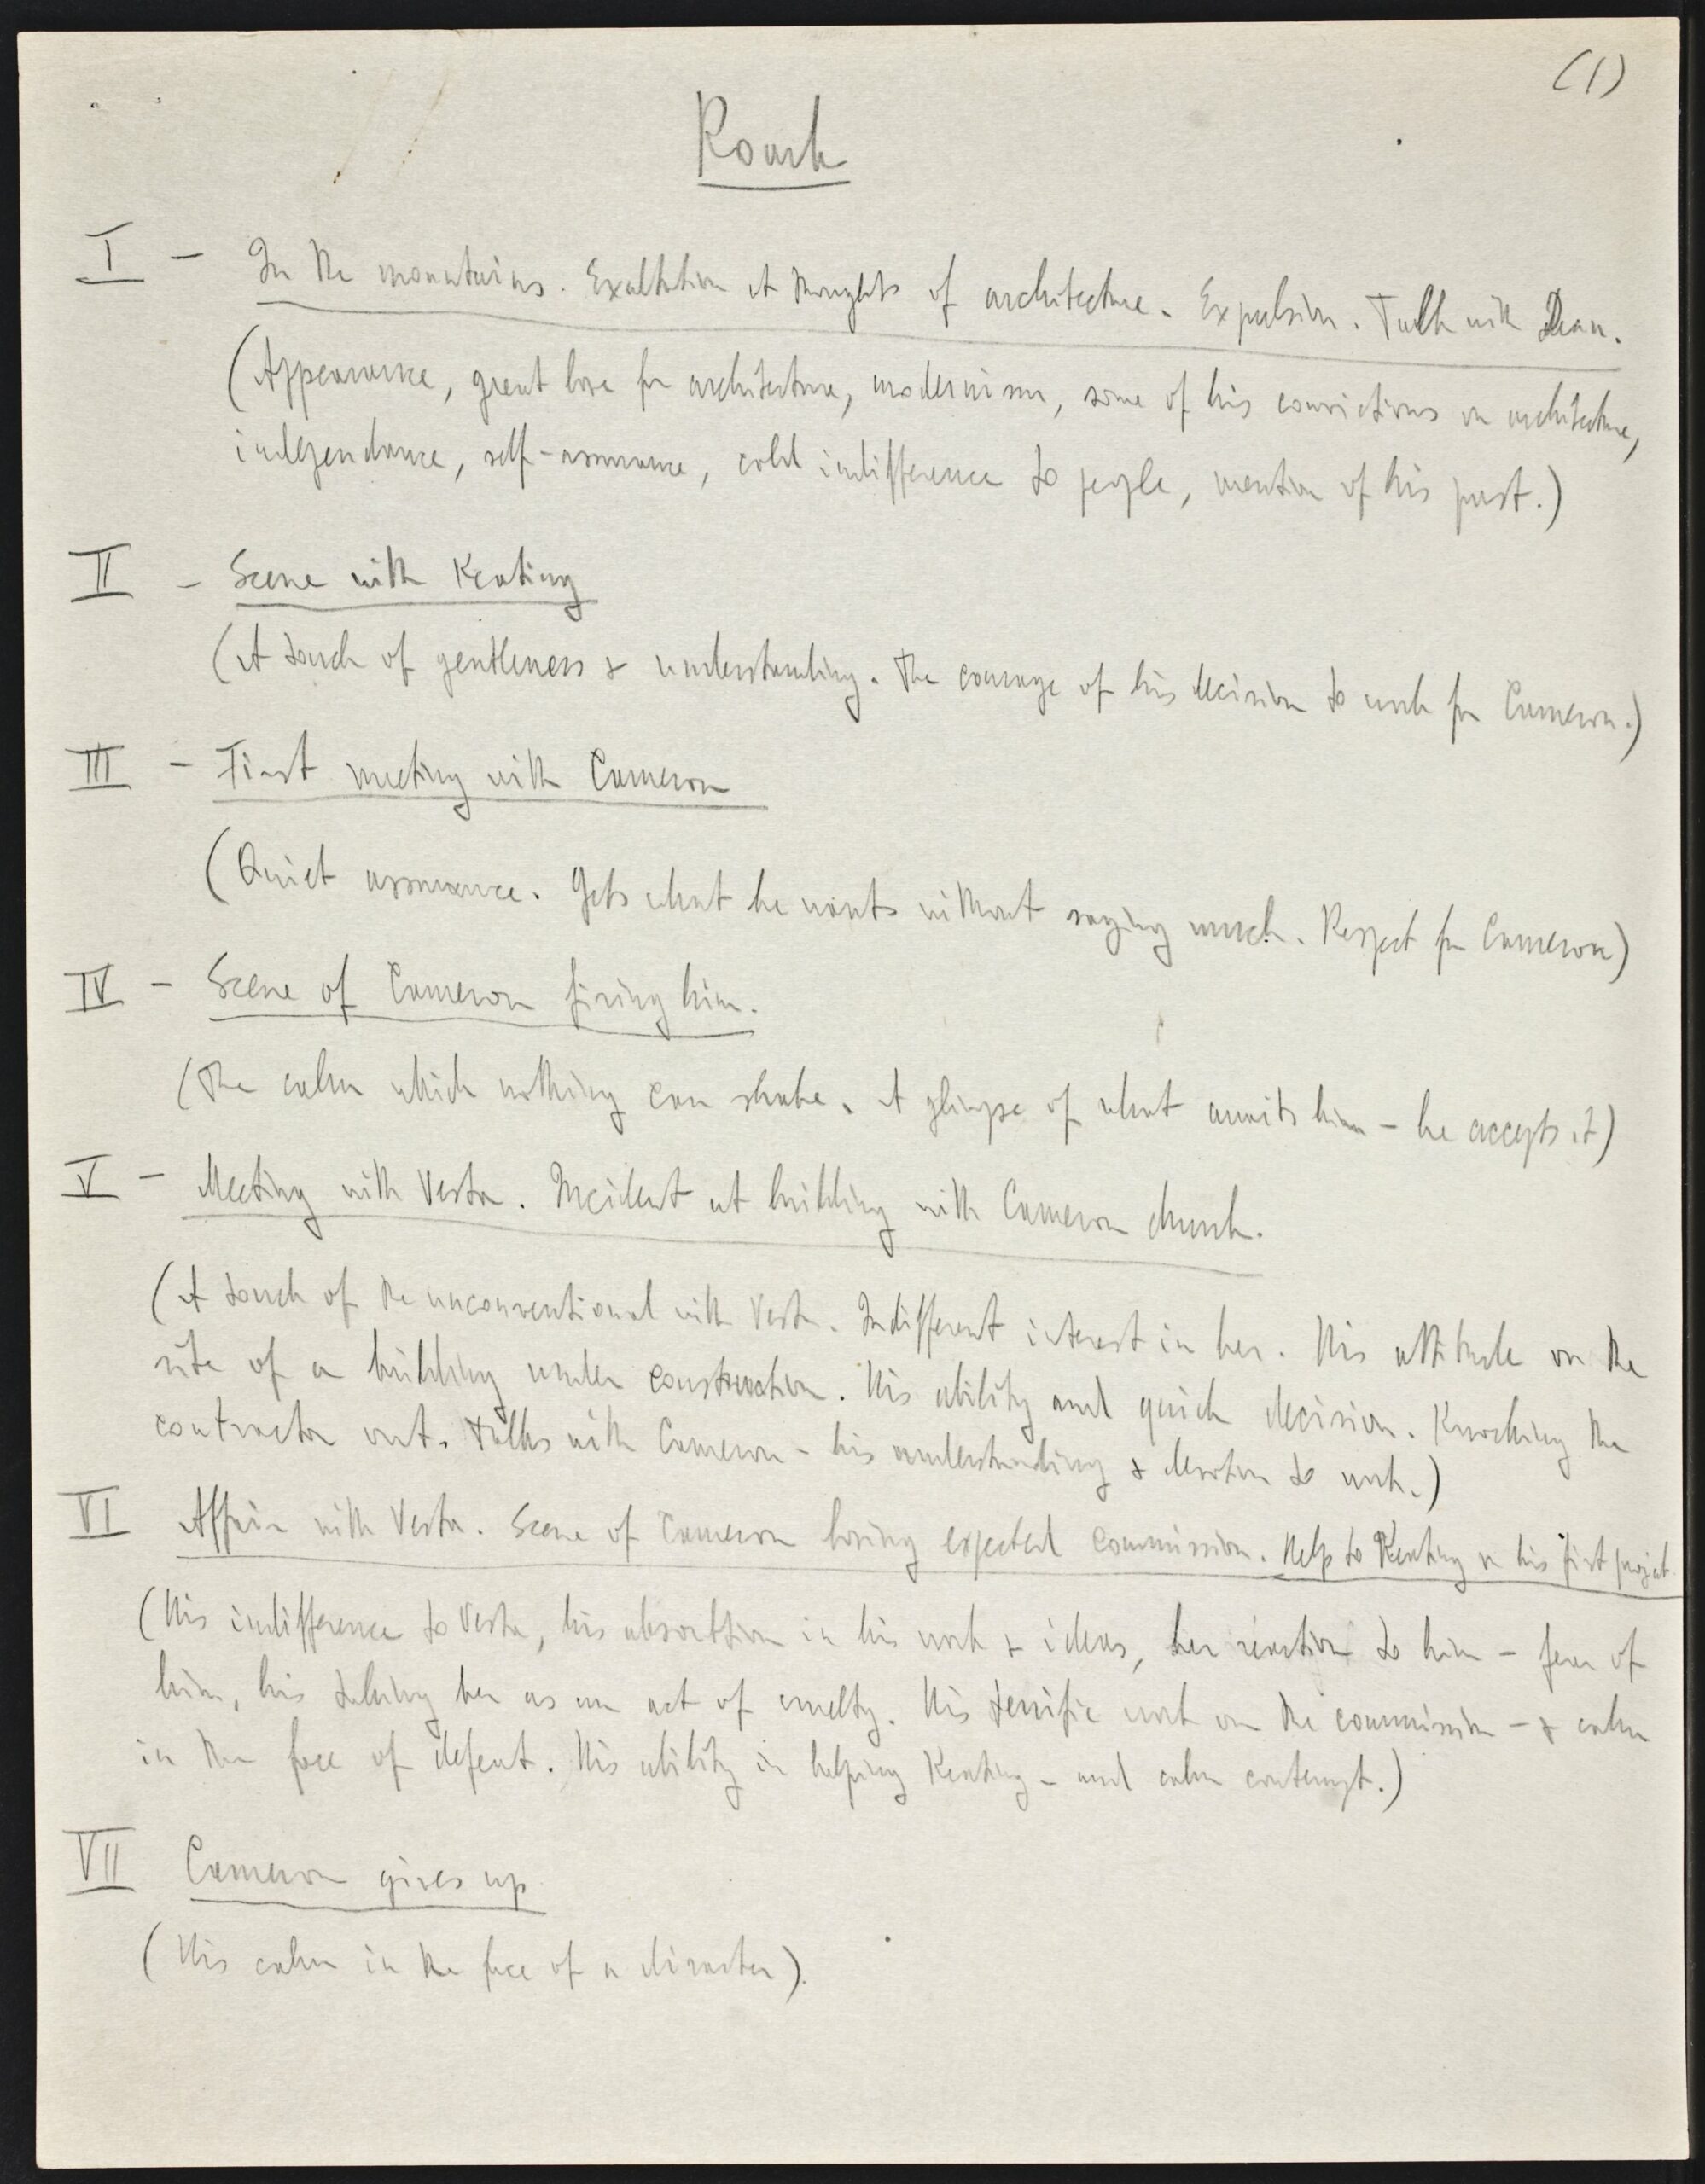 (1)
Roark
I - In the mountains. Exaltation at thoughts of architecture. Expulsion. Talk with Dean.
(Appearance, great love for architecture, modernism, some of his convictions on architecture,
independance, self-assurance, cold indifference to people, mention of his past.)
II - Scene with Keating
(A touch of gentleness & understanding. The courage of his decision to work for Cameron.)
III - First meeting with Cameron
(Quiet assurance. Gets what he wants without saying much. Respect for Cameron)
IV - Scene of Cameron firing him.
(The calm which nothing can shake. A glimpse of what awaits him - he accepts it)
V - Meeting with Vesta. Incident at building with Cameron drunk.
(A touch of the unconventional with Vesta. Indifferent interest in her. His attitude on the
site of a building under construction. His ability and quick decision. Knocking the
contractor out. Talks with Cameron - his understanding & devotion to work.)
VI Affair with Vesta. Scene of Cameron losing expected commission. Help to Keating on his first project.
(His indifference to Vesta, his absorbtion in his work & ideas, her reaction to him - fear of
him, his taking her as an act of cruelty. His terrific work on the commission - & calm
in the face of defeat. His ability in helping Keating - and calm contempt.)
VII Cameron gives up
(His calm in the face of a disaster).